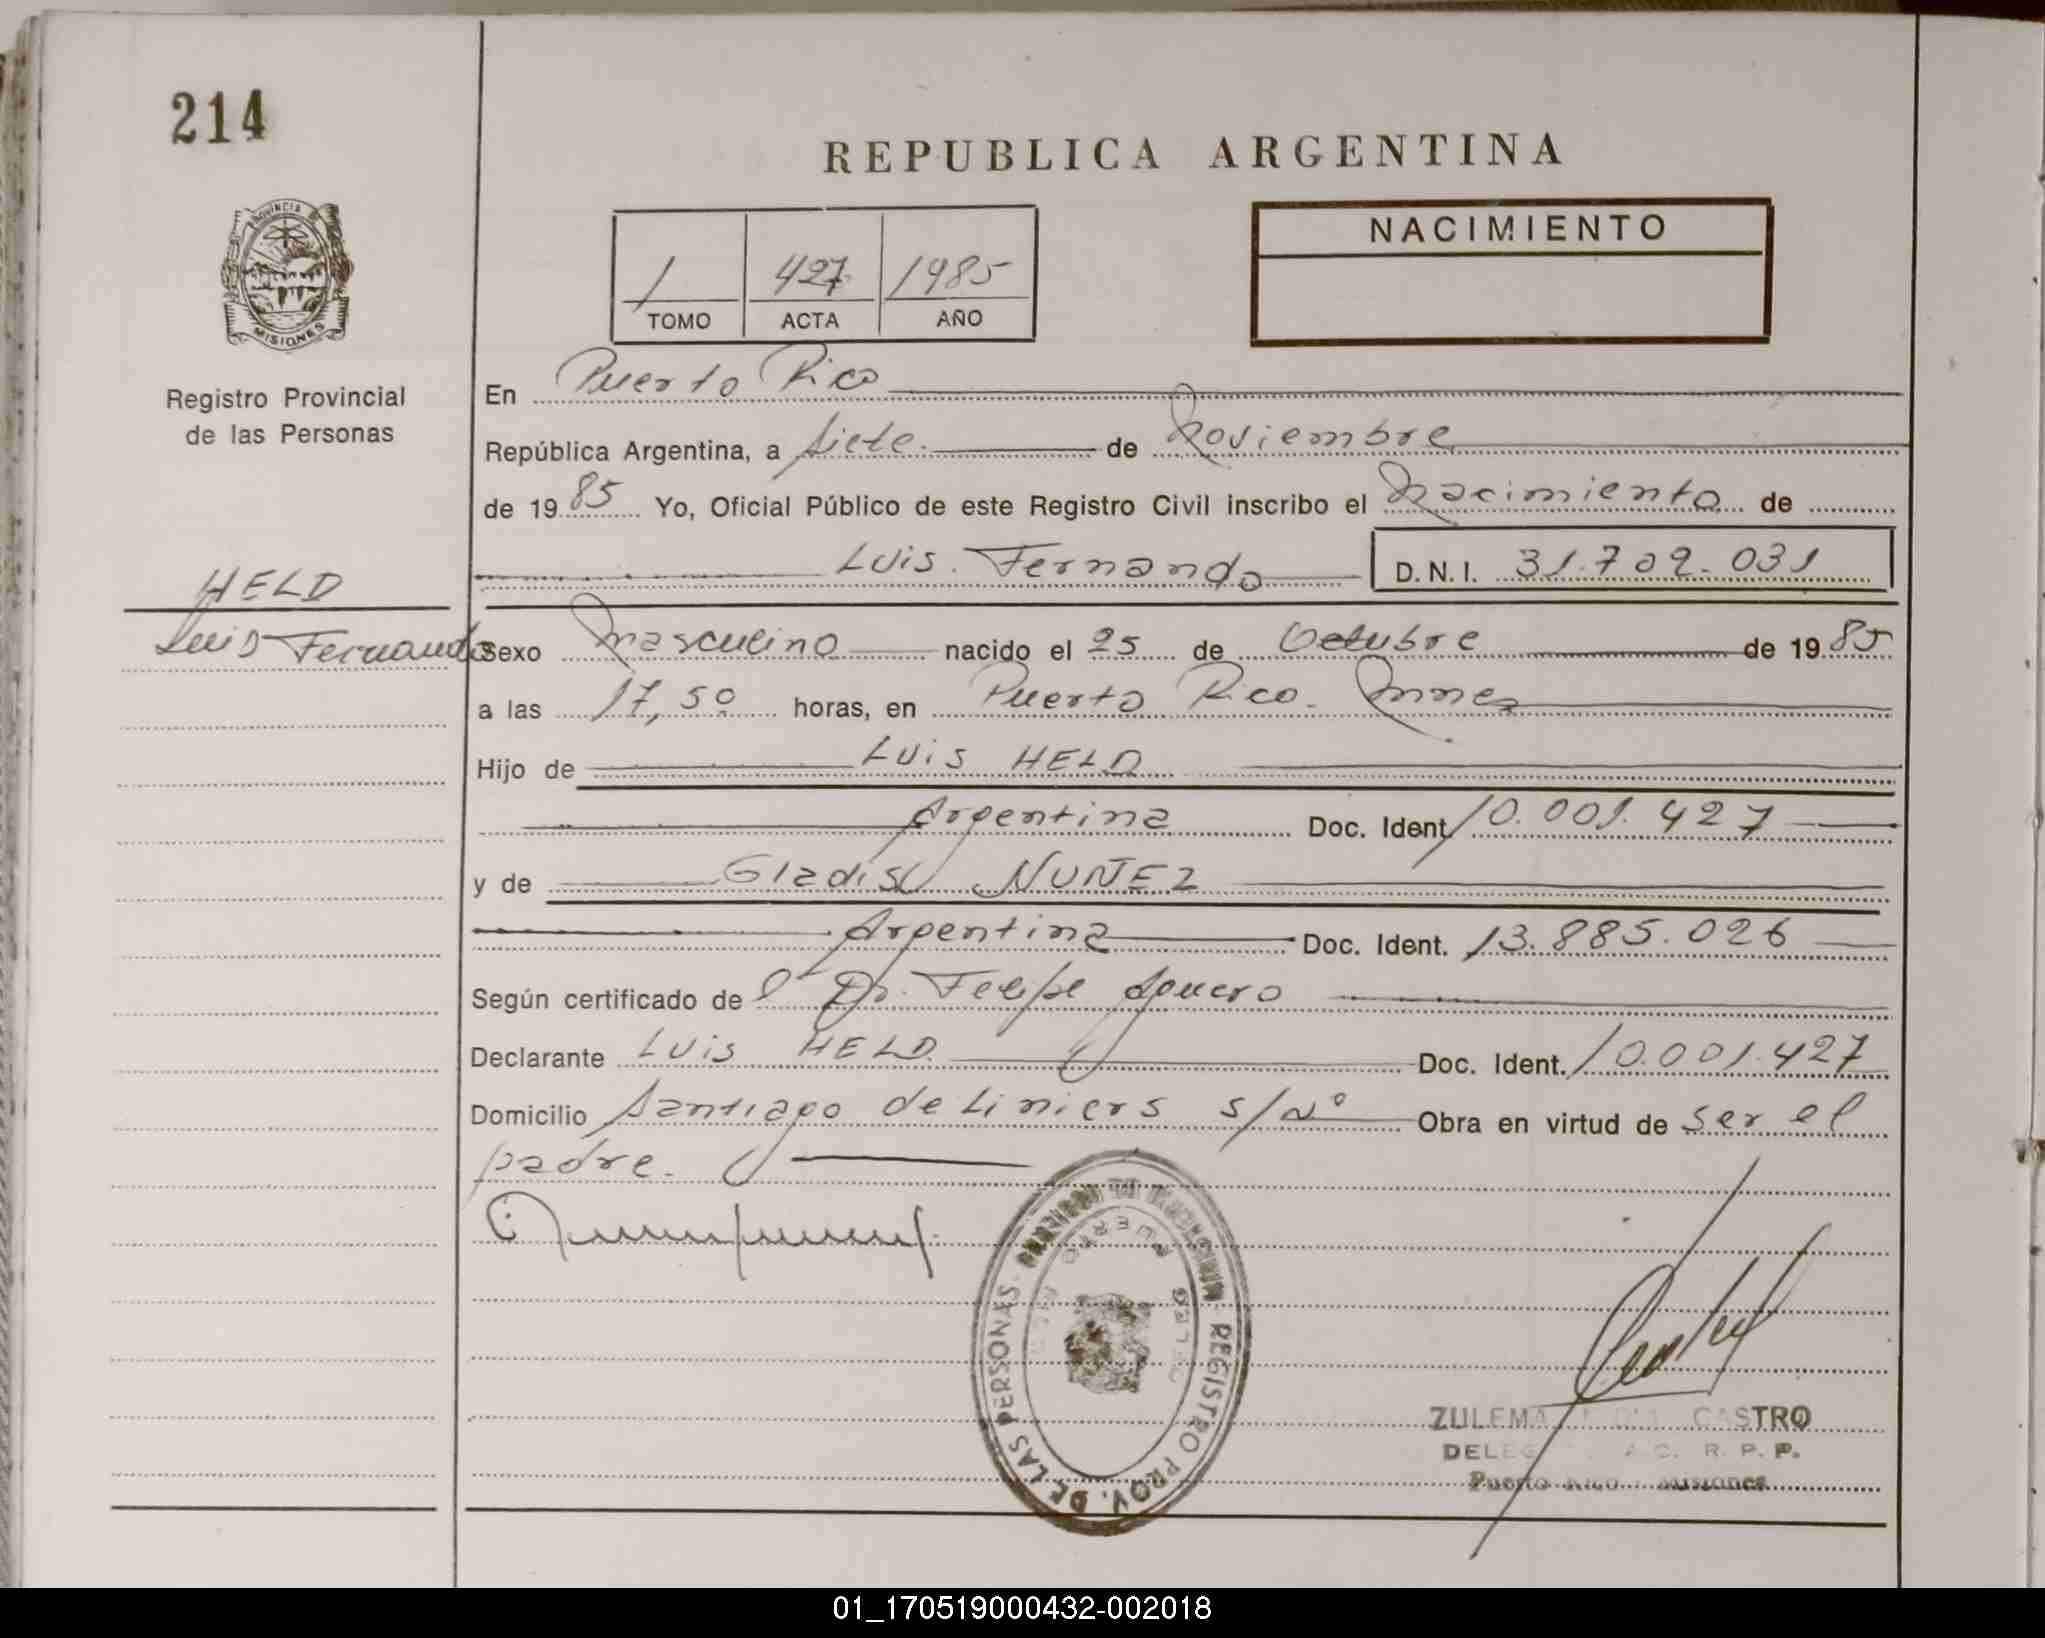 214
REPUBLICA ARGENTINA
PROVINCIA D
MISIONES
Registro Provincial
de las Personas
1 427 1985
TOMO ACTA AÑO
NACIMIENTO
En Puerto Rico
República Argentina, a siete de Noviembre
de 1985 Yo, Oficial Público de este Registro Civil inscribo el Nacimiento de
Luis Fernando D.N.I. 31.709.031
HELD
Luis Fernando
Sexo Masculino nacido el 25 de Octubre de 1985
a las 17,50 horas, en Puerto Rico. Mnes
Hijo de Luis HELD
Argentina Doc. Ident. 10.001.427
y de Gladis NUÑEZ
Argentina Doc. Ident. 13.885.026
Según certificado de l Dr. Felipe Aguero
Declarante Luis HELD. Doc. Ident. 10.001.427
Domicilio Santiago de Liniers s/Nº Obra en virtud de ser el
padre.
REGISTRO PROV. DE LAS PERSONAS
PUERTO
ZULEMA CASTRO
R. P. P.
Puerto Rico - Misiones
01_170519000432-002018